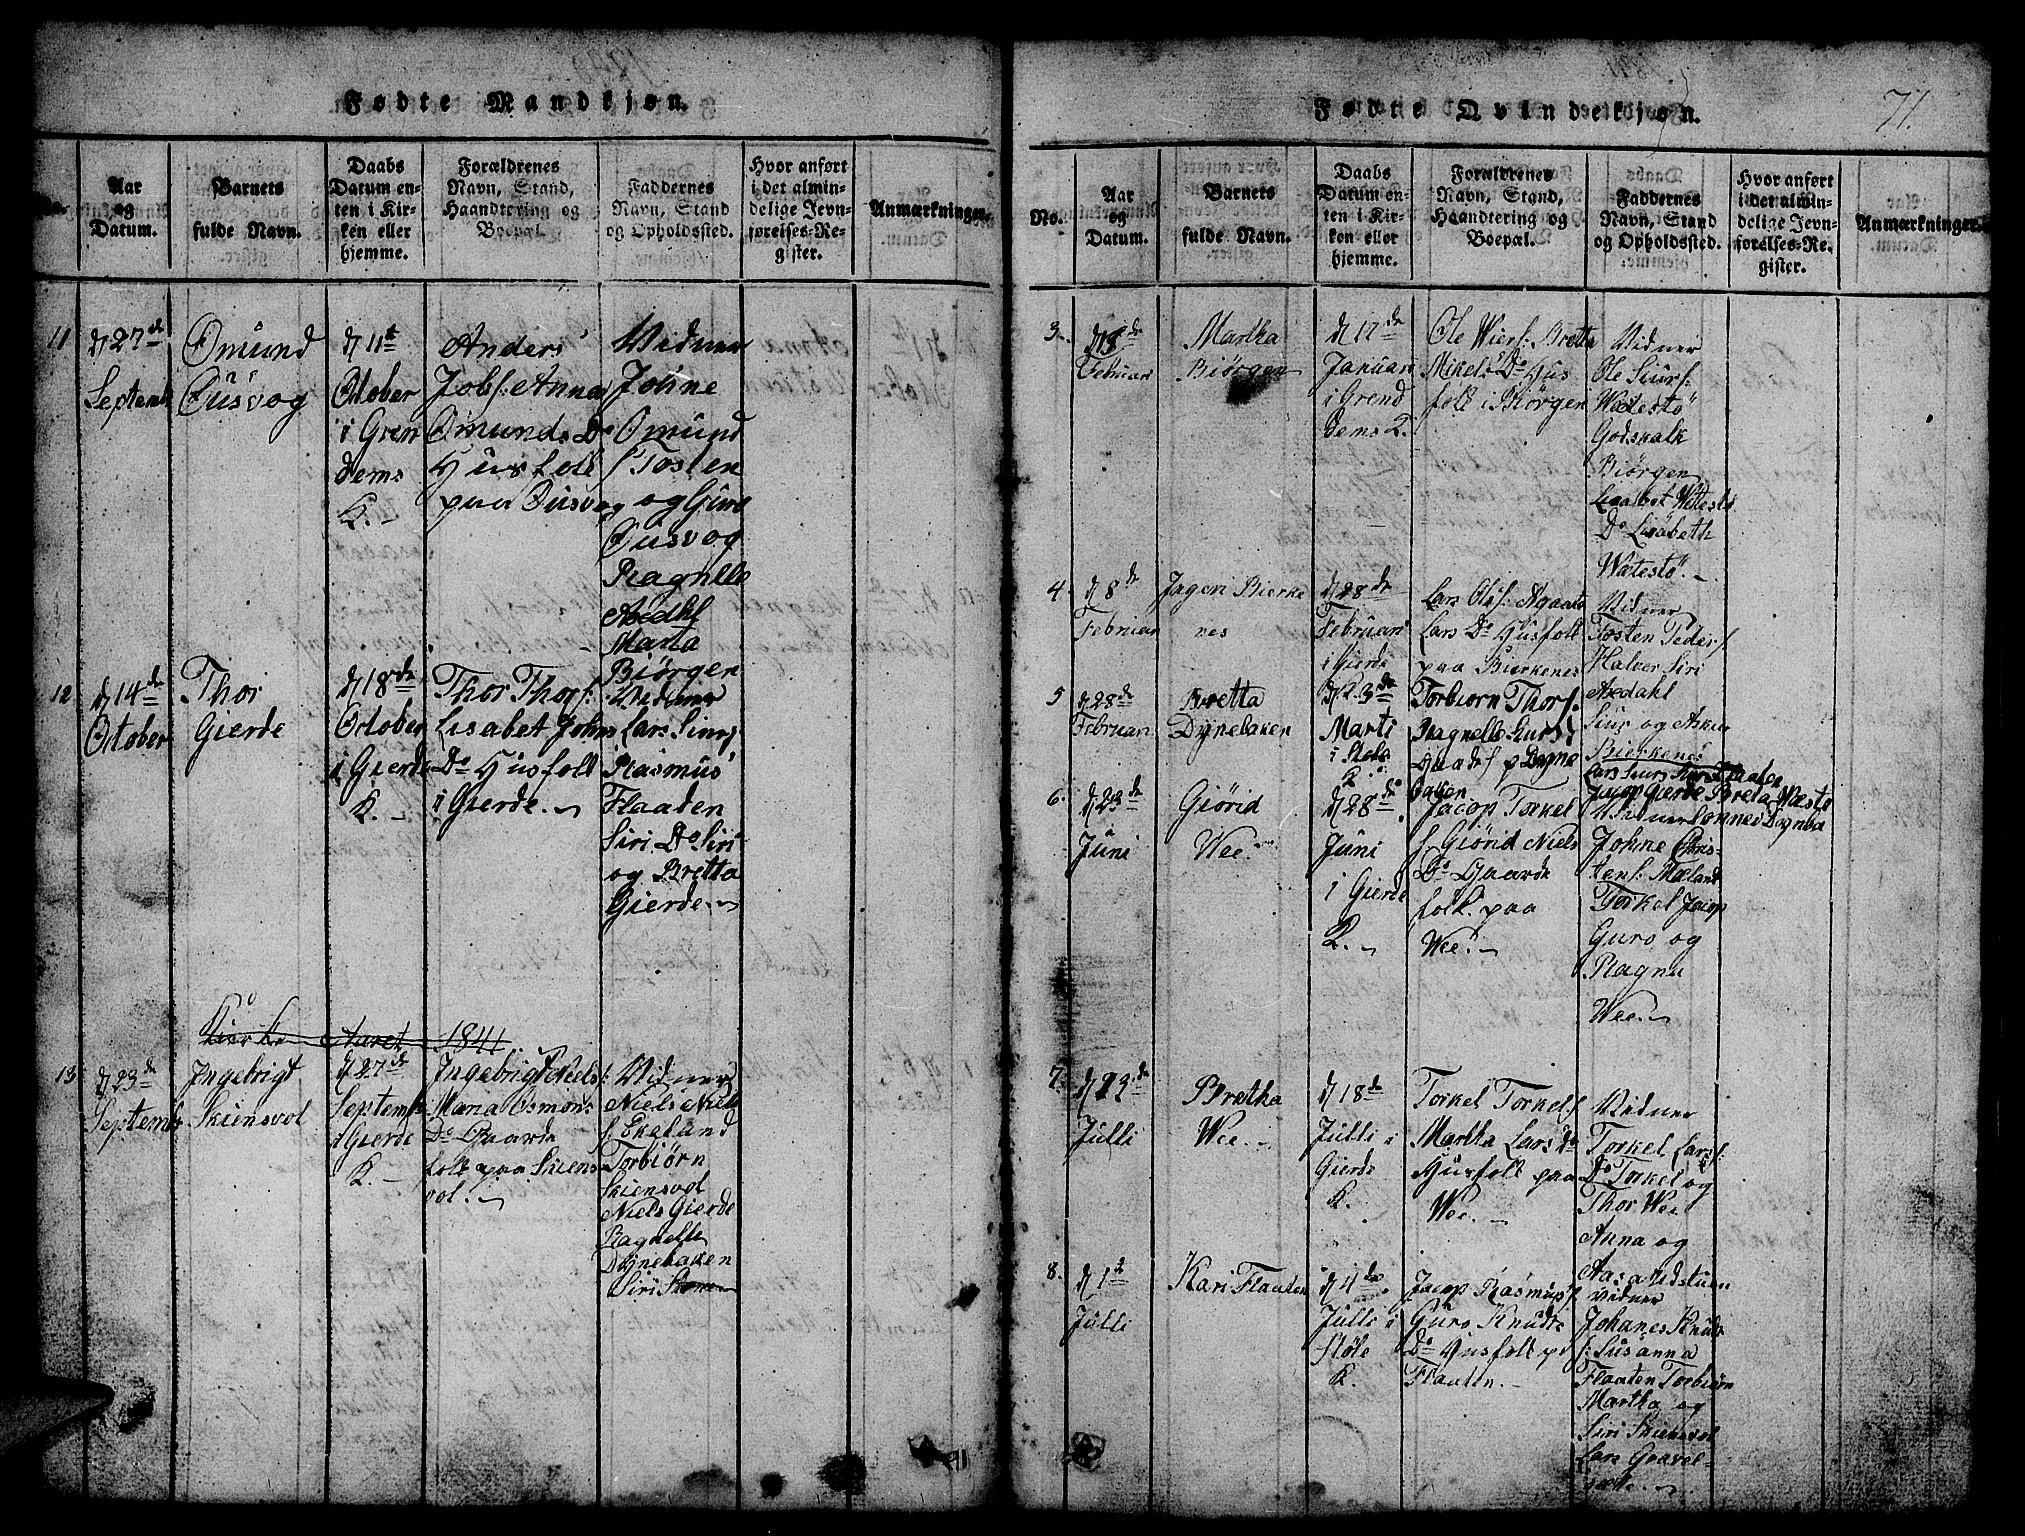 Fødte Mandkjøn.
Aar og Datum.
Barnets fulde Navn.
Daabs Datum enten i Kirken eller hjemme.
Forældrenes Navn, Stand, Haandtering og Boepæl.
Faddernes Navn, Stand og Opholdssted.
Hvor anført i det almindelige Jevnførelses-Register.
Anmærkninger.
11
d 27de
Septemb
Omund
Øusvog
d 11te
October
i Gren
dems
K. -
Anders
Jobs: Anna
Omunds Do
Husfolk
paa Øusvog
Vidner
Johne
Omund
s Tosten
og Guro
Øusvog
Ragnelle
Aadahl
Marta
Biørgen
12
d 14de
October
Thor
Gierde
d 18de
October
i Gierde
K. -
Thor Thors:
Lisabet Johns
Do Husfolk
i Gierde. -
Vidner
Lars Siurs
Rasmus
Flaaten
Siri Do Siri
og Bretta
Gierde. -
Kirke Aaret 1841
13
d 23de
Septemb
Ingebrigt
Skiensvol
d 27de
Septemb
i Gierde
K. -
Ingebrigt Niels
Maria Osmons
Do Gaarde
folk paa Skiens
vol. -
: Vidner
Niels Niels
s: Ekeland
Torbiørn
Skiensvol
Niels Gierde
Ragnelle
Dynebaken
Siri
Fødte Qvindekjøn.
71.
No.
Aar og Datum.
Barnets fulde Navn.
Daabs Datum enten i Kirken eller hjemme.
Forældrenes Navn, Stand, Haandtering og Boepæl.
Faddernes Navn, Stand og Opholdssted.
Hvor anført i det almindelige Jevnførelses-Register.
Anmærkninger.
3.
Februari
Martha
Biørgen
d 17de
Januari
i Grend
dems K.
Ole Wiers: Bretta
Mikels Do Hus
folk i Biørgen
Vidner
Ole Siurs:
Wætestø
Godskalk
Biørgen
Lisabet Wetestø
Do Lisabeth
Wætestø. -
4.
d 8de
Februari
Jageri Bierke
nes
d 28de
Februari
i Gierde
Lars Ols: Agaata
Lars Do Husfolk
paa Bierkenes
Vidner
Tosten Peders
Halver Siri
Aadahl
Siur og Anna
Bierkenes
5
d 28de
Februari
Bretta
Dynebaken
d 23de
Marti
i Støle
K.
Torbiørn Thors:
Ragnelle Lurs
Gaardsf p Dyne
baken
Lars Siurs
Jacop Gierde Breta Wæstø
6.
d 23de
Juni
Giørid
Wee.
d 28de
Juni
i Gierde
K. -
Jacop Torkel
s Giørid Niels
Do Gaarde
folk paa
Wee. -
Vidner
Johne Chris-
tens: Mæland
Torkel Jacop
Guro og
Ragna
Wee. -
7.
d 13de
Julli
Bretha
Wee.
d 18de
Julli i
Gierde
K.
Torkel Torkels
Martha Lars Do
Husfolk paa
Wee. -
Vidner
Torkel Lars:
Do Torkel og
Thor Wee
Anna og
Aasa Udstuen
8.
d 1te
Julli
Kari Flaaten
d 4de
Julli i
Støle
K.
Jacop Rasmus
Guro Knuds
Do Husfolk p
Flaaten. -
Vidner
Johanes Knuds
s: Susanna
Flaaten Torbiørn
Martha og
Siri Skiensvol
Lars Graavel-